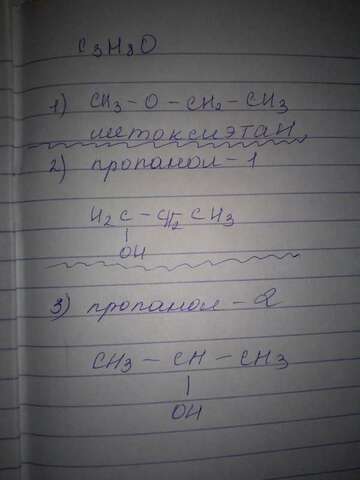 C3H8O
1) CH3 - O - CH2 - CH3
метоксиэтан
2) пропанол - 1
H2C - CH2 CH3
|
OH
3) пропанол - 2
CH3 - CH - CH3
|
OH